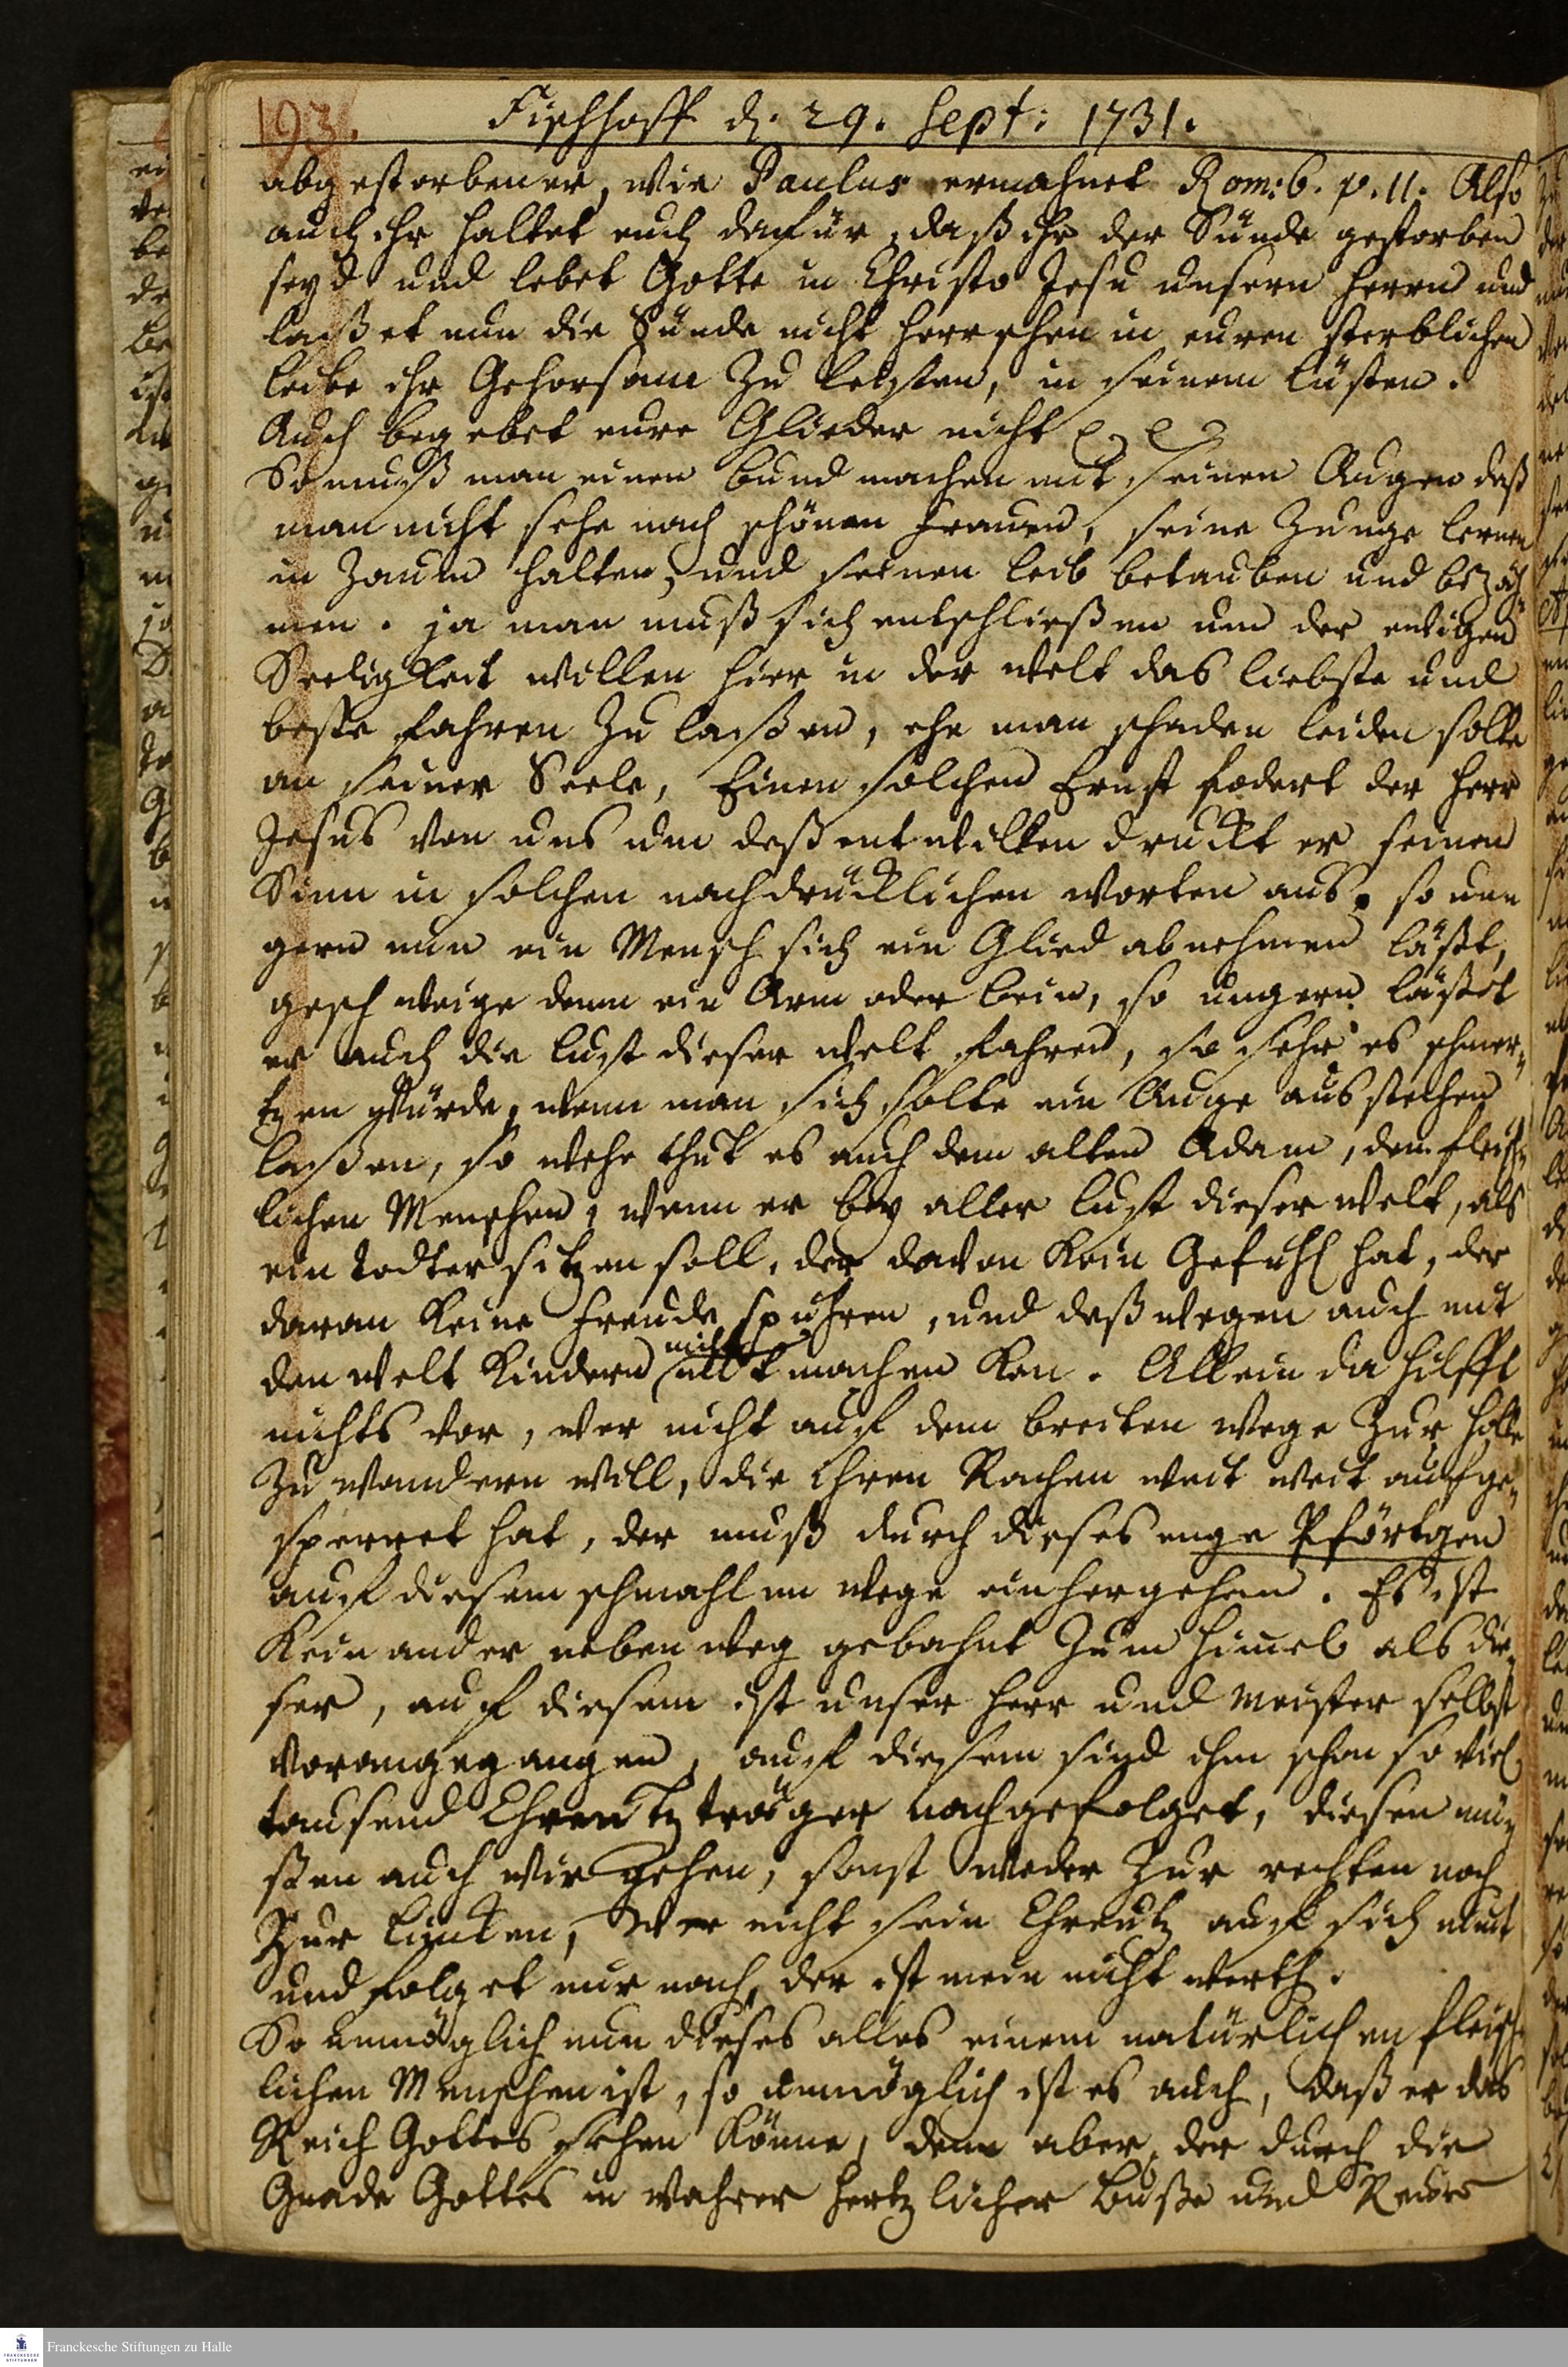 193. Fischhoff d. 29. Sept: 1731.
abgestorbener, wie Paulus ermahnet Rom: 6. v. 11. Also
auch ihr haltet euch dafür, daß ihr der Sünde gestorben
seyd und lebet Gotte in Christo Jesu unsern Herrn und
laßet nun die Sünde nicht herrschen in euren sterblichen
leibe ihr Gehorsam zu leisten, in seinem lüsten.
Auch begebet eure Glieder nicht
So muß man einen bund machen mit seinen Augen daß
man nicht sehe nach schönen Frauen, seine Zunge lernen
in Zaum halten, und seinen leib betauben und bezäh
men. ja man muß sich entschließen um der ewigen
Seeligkeit willen hier in der welt das liebste und
beste fahren zu laßen, ehe man schaden leiden solte
an seiner Seele, Einen solchen Ernst fodert der Herr
Jesus von uns um deßentwillen druckt er seinen
Sinn in solchen nachdrücklichen worten aus. so un
gern nun ein Mensch sich ein Glied abnehmen läßt,
geschweige denn ein Arm oder bein, so ungern läßet
er auch die lust dieser welt fahren, so sehr es schmer„
tzen würde, wenn man sich solte ein Auge ausstechen
laßen, so wehe thut es auch dem alten Adam, dem fleisch„
lichen Menschen, wenn er bey aller lust dieser welt, als
ein todter sitzen soll, der davon kein Gefühl hat, der
daran keine Freude spühren, und deßwegen auch mit
den welt kindern nicht mit machen kan. Allein da hilfft
nichts vor, wer nicht auf dem breiten wege zur Hölle
zu wandern will, die ihren Rachen weit weit aufge„
sperret hat, der muß durch dieses enge Pförtgen
auf diesem schmahlen wege einhergehen. Es ist
kein ander neben weg gebahnt zum Himel als die„
ser, auf diesem ist unser Herr und Meister selbst
vorangegangen, auf diesem sind ihm schon so viel
tausend Chreutzträger nachgefolget, diesen mü„
ßen auch wir gehen, sonst weder zur rechten noch
zur lincken, Wer nicht sein Chreutz auf sich nimt
und folget mir nach, der ist mein nicht werth.
So unmöglich nun dieses alles einem natürlichen fleisch„
lichen Menschen ist, so unmöglich ist es auch, daß er das
Reich Gottes sehen könne, dem aber, der durch die
Gnade Gottes in wahrer hertzlicher buße und
Franckesche Stiftungen zu Halle